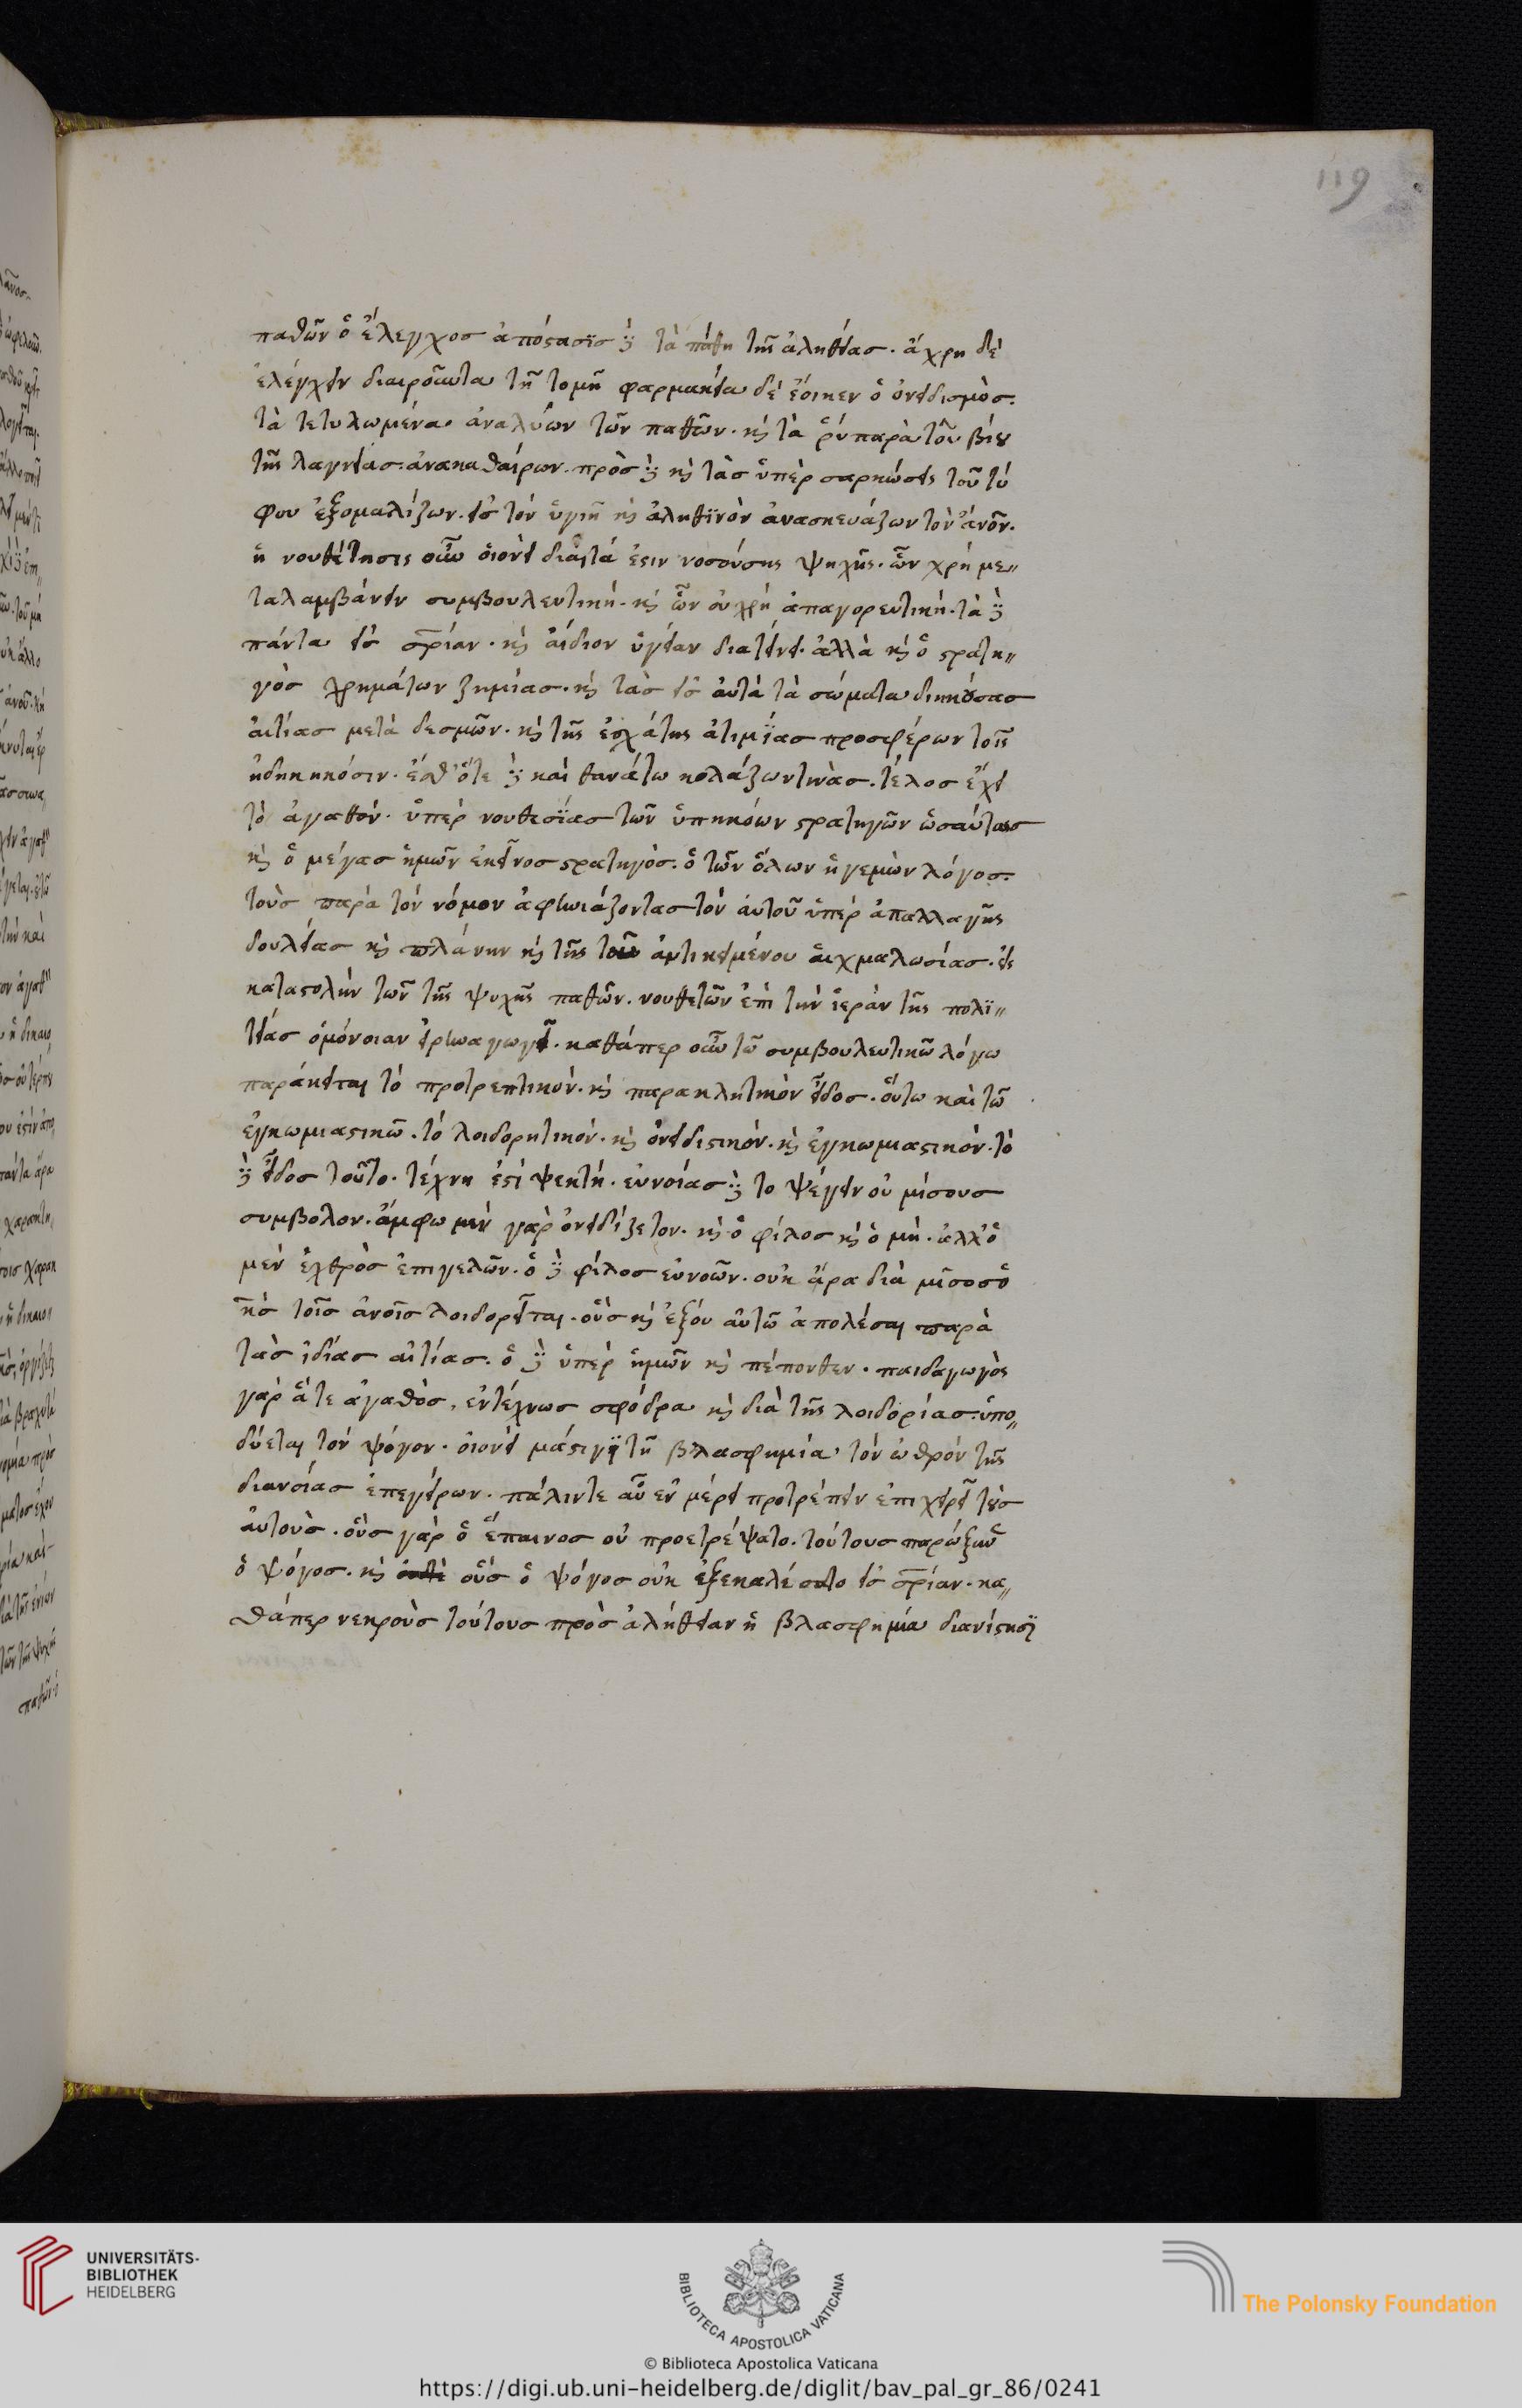 119
παθῶν ὁ ἔλεγχος ἀπόστασις δὲ τὰ πάθη τῆς ἀληθείας. ἄχρη δὲ
ἐλέγχειν διαιροῦντα τῇ τομῇ φαρμακεία δὲ ἔοικεν ὁ ὀνειδισμὸς.
τὰ τετυλωμένα ἀναλύων τῶν παθῶν. καὶ τὰ ῥύπαρὰ τοῦ βίου
τῆς λαγνείας. ἀνακαθαίρων. πρὸς δὲ καὶ τὰς ὑπὲρ σαρκώσεις τοῦ τύ
φου ἐξομαλίζων. εἰς τὸν ὑγιῆ καὶ ἀληθϊνὸν ἀνασκευάζων τὸν ἄνον.
ἡ νουθέτησις οὖν οἱονεὶ δίαιτά ἐστιν νοσούσης ψηχῆς. ὧν χρή με〃
ταλαμβάνειν συμβουλευτική. καὶ ὧν οὐ χρὴ ἀπαγορευτική. τὰ δὲ
πάντα εἰς σρίαν. καὶ ἀίδιον ὑγείαν διατείνει. ἀλλὰ καὶ ὁ στρατη〃
γὸς χρημάτων ζημίας. καὶ τὰς εἰς αὐτὰ τὰ σώματα διηκούσας
αἰτίας μετὰ δεσμῶν. καὶ τῆς ἐσχάτης ἀτιμΐας προσφέρων τοῖς
ἠδηκηκόσιν. ἔσθ' ὅτε δὲ καὶ θανάτω κολάζων τινὰς. τέλος ἔχει
τὸ ἀγαθόν. ὑπὲρ νουθεσΐας τῶν ὑπηκόων στρατηγῶν ὡσαύτως
καὶ ὁ μέγας ἡμῶν ἐκεῖνος στρατηγὸς. ὁ τῶν ὅλων ἡγεμὼν λόγος.
τοὺς παρὰ τὸν νόμον ἀφηνιάζοντας τὸν αὐτοῦ ὑπὲρ ἀπαλλαγῆς
δουλείας καὶ πλάνην καὶ τῆς τοῦ ἀντικειμένου αἰχμαλωσίας. εἰς
καταστολὴν τῶν τῆς ψυχῆς παθῶν. νουθετῶν ἐπὶ τὴν ἱερὰν τῆς πολϊ〃
τείας ὁμόνοιαν εἰρηναγωγεῖ. καθάπερ οὖν τῶ συμβουλευτικῶ λόγω
παράκειται τὸ προτρεπτικόν. καὶ παρακλητικὸν εἶδος. οὕτω καὶ τῶ
ἐγκωμιαστικῶ. τὸ λοιδορητικόν. καὶ ὀνειδιστικόν. καὶ ἐγκωμιαστικόν. τὸ
δὲ εἶδος τοῦτο. τέχνη ἐστὶ ψεκτή. εὐνοίας δὲ το ψέγειν οὐ μίσους
συμβολον. ἄμφω μὲν γαρ ὀνειδίζετον. καὶ ὁ φίλος καὶ ὁ μὴ. ἀλλ' ὁ
μὲν ἐχθρὸς ἐπιγελῶν. ὁ δὲ φίλος εὐνοῶν. οὐκ ἄρα διὰ μῖσος ὁ
κς τοῖς ἀνοις λοιδορεῖται. οὓς καὶ ἐξὸν αὐτῶ ἀπολέσαι παρὰ
τὰς ἰδίας αἰτίας. ὁ δὲ ὑπὲρ ἡμῶν καὶ πέπονθεν. παιδαγωγὸς
γὰρ ἅτε ἀγαθὸς, εὐτέχνως σφόδρα καὶ διὰ τῆς λοιδορίας. ὑπο〃
δύεται τὸν ψόγον. οἱονεὶ μάστιγϊ τῆ βλασφημία τὸν ωθρόν τῆς
διανοίας ἐπεγείρων. πάλιν τε αὖ ἐν μέρει προτρέπειν ἐπιχειρεῖ τοὺς
αὐτοὺς. οὓς γὰρ ὁ ἔπαινος οὐ προετρέψατο. τούτους παρώξυνεν
ὁ ψόγος. καὶ οὓς ὁ ψόγος οὐκ ἐξεκαλέσατο εἰς σρίαν. κα〃
θάπερ νεκροὺς τούτους πρὸς ἀλήθειαν ἡ βλασφημία διανίστησϊ
UNIVERSITÄTS-
BIBLIOTHEK
HEIDELBERG
BIBLIOTECA APOSTOLICA VATICANA
The Polonsky Foundation
© Biblioteca Apostolica Vaticana
https://digi.ub.uni-heidelberg.de/diglit/bav_pal_gr_86/0241